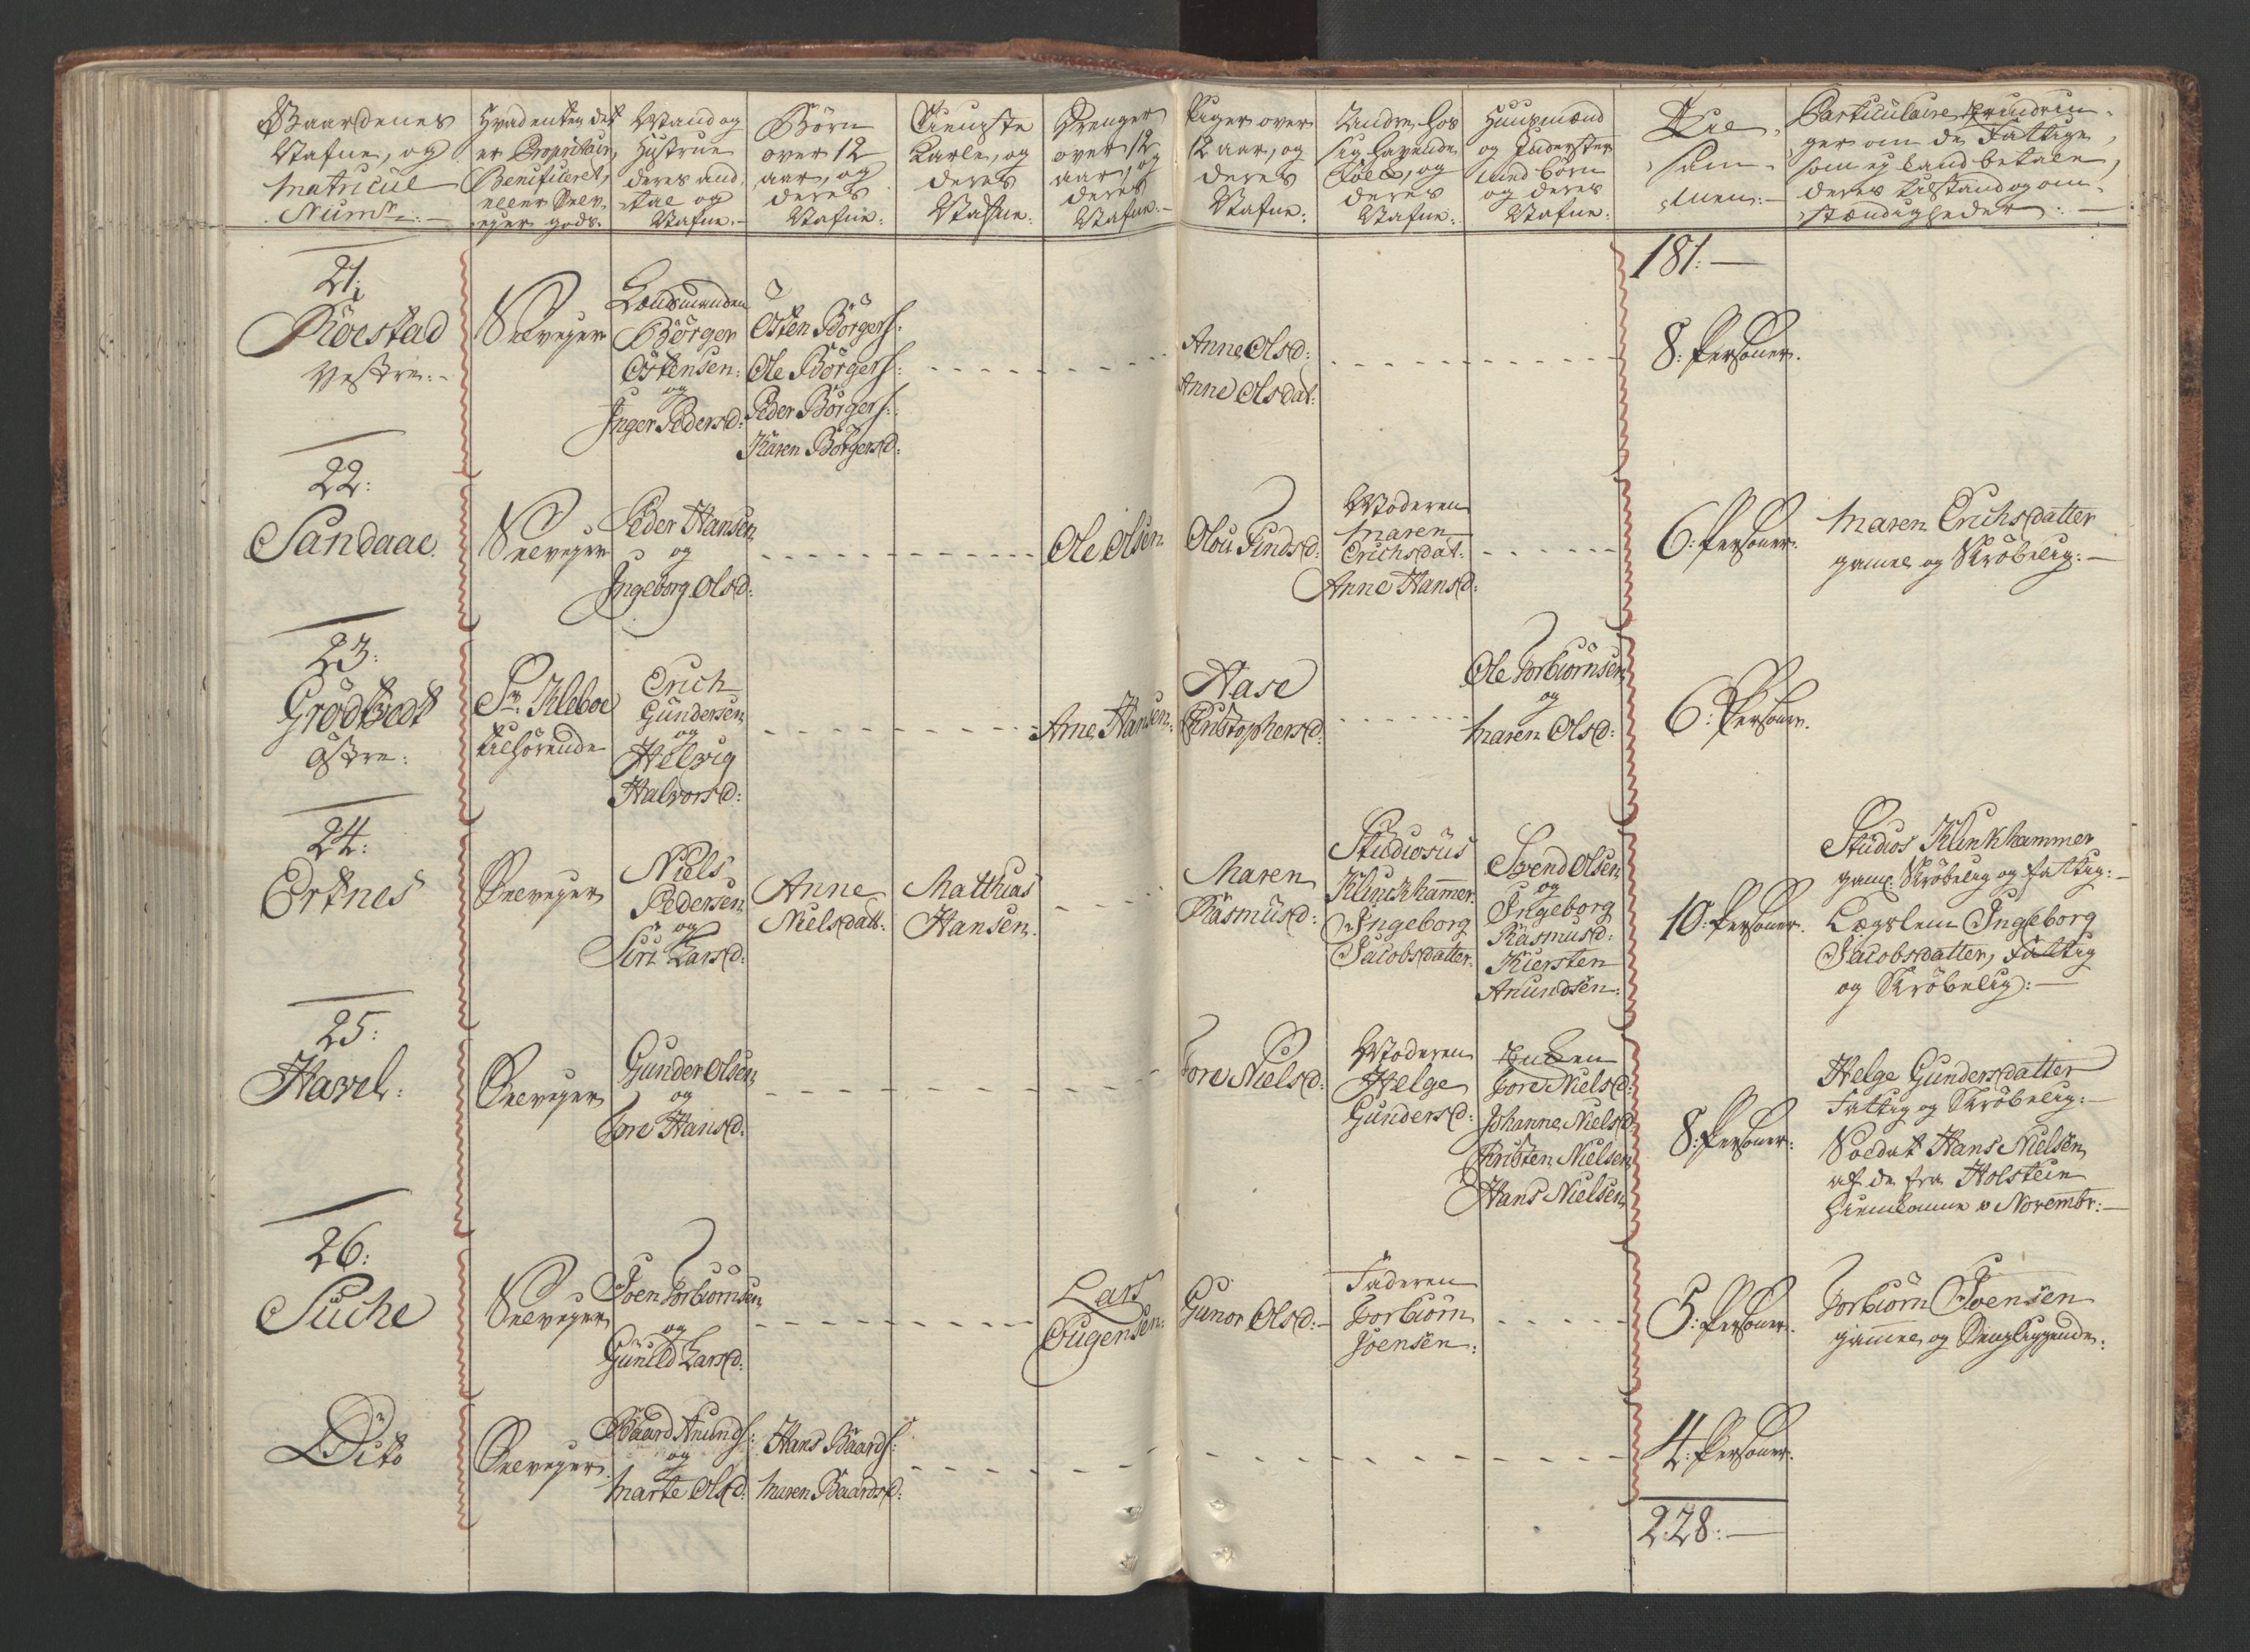 Gaardenes
Nafne, og
Matricul
Num:
Hvad enten det
er Proprietair,
Beneficeret,
eller Selv-
eyer gods.
Mand og
Hustrue
deres and-
tal og
Nafne.
Börn
over 12
aar, og
deres
Nafne:
Tieniste
Karle, og
deres
Nafne:
Drenger
over 12
aar, og
deres
Nafne.
Piger over
12 aar, og
deres
Nafne:
Andre hos
sig havende
Folk, og
deres
Nafne:
Huusmænd
og Inderster
med börn
og deres
Nafne:
Til-
sam-
men:
Particulaire Erindrin-
ger om de Fattige,
som ej kand betale,
deres tilstand og om-
stændigheder:
181:
21:
Röestad
Vestre:
Selveyer
Lensmanden
Börger
Östensen:
og
Inger Pedersd:
Östen Börgers:
Ole Börgers:
Peder Börgers:
Karen Börgersd:
Anne Olsd:
Anne Olsdat:
8: Personer.
22:
Sandaae.
Selveyer
Peder Hansen
og
Ingeborg Olsd:
Ole Olsen
Olou Findsd:
Moderen
Maren
Erichsdat:
Anne Hansd:
6: Personer.
Maren Erichsdatter
gamel og Skröbelig:
23:
Grödtvedt
Östre:
Sr. Kleboe
tilhörende
Erich
Gundersen
og
Helvig
Halvorsd:
Arne Hansen.
Aase
Christophersd:
Ole Torbiörnsen
og
Maren Olsd:
6: Personer.
24:
Ertnes
Selveyer
Niels
Pedersen
og
Siri Larsd:
Anne
Nielsdatt:
Matthias
Hansen.
Maren
Rasmusd:
Studiosus
Klinckhamer.
Ingeborg
Jacobsdatter.
Svend Olsen
og
Ingeborg
Rasmusd:
Kiersten
Anundsen:
10: Personer.
Studios Klinkhammer
gamel. Skröbelig og fattig:
Lægslem Ingeborg
Jacobsdatter, Fattig
og Skröbelig:
25:
Havel:
Selveyer
Gunder Olsen
og
Tore Hansd:
Tore Nielsd:
Moderen
Helge
Gundersd:
Enken
Tore Nielsd:
Johanne Nielsd
Kristen Nielsen
Hans Nielsen
8: Personer:
Helge Gundersdatter
Fattig og Skröbelig:
Soldat Hans Nielsen
af de fra Holsteen
hiemkomne Novembr:
26:
Suche
Selveyer
Joen Torbiörnsen
og
Gunild Larsd:
Lars
Eugensen:
Gunor Olsd:
Faderen
Torbiörn
Joensen:
5: Personer.
Torbiörn Joensen
gammel og Sengliggende:
Dito
Selveyer.
Baard Anunds:
og
Marte Olsd:
Hans Baards:
Maren Baardsd:
4: Personer.
228: